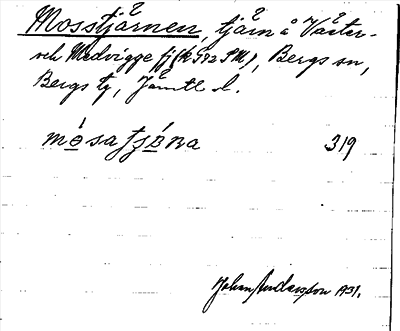 Mosstjärnen, tjärn å Väster-
och Medvigge fj (k 592 SM), Bergs sn,
Bergs tg, Jämtl. l.
mo̲sa tjä̲rna 319
Johan Andersson 1931.